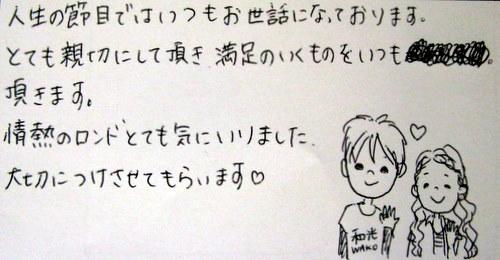 人生の節目ではいつもお世話になっております。
とても親切にして頂き 満足のいくものをいつも
頂きます。
情熱のロンドとても気にいりました
大切につけさせてもらいます♡
和光
WAKO